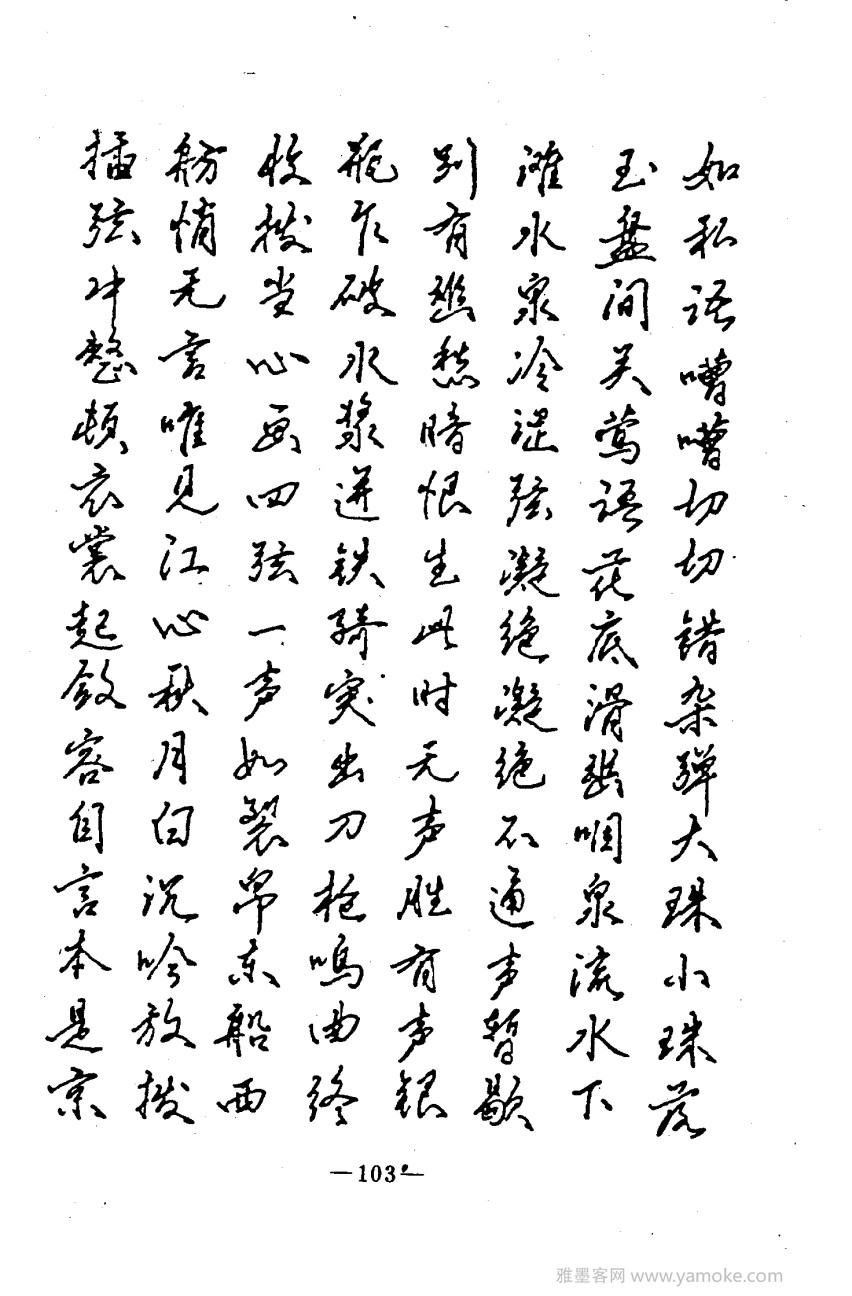 如私语嘈嘈切切错杂弹大珠小珠落
玉盘间关莺语花底滑幽咽泉流水下
滩水泉冷涩弦凝绝凝绝不通声暂歇
别有幽愁暗恨生此时无声胜有声银
瓶乍破水浆迸铁骑突出刀枪鸣曲终
收拨当心画四弦一声如裂帛东船西
舫悄无言唯见江心秋月白沉吟放拨
插弦中整顿衣裳起敛容自言本是京
—103—
雅墨客网 www.yamoke.com